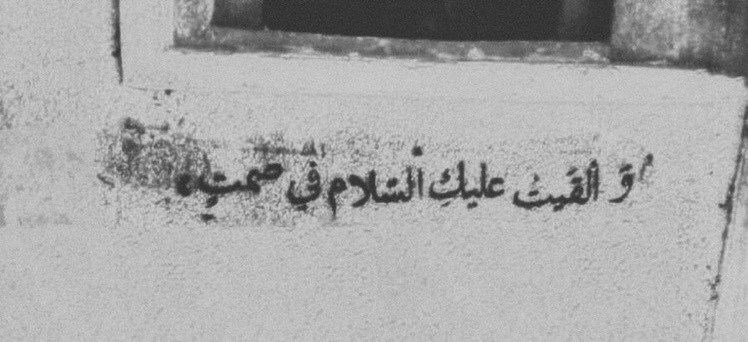 وَ ألقَيتُ عليكِ السّلام في صمتٍ.